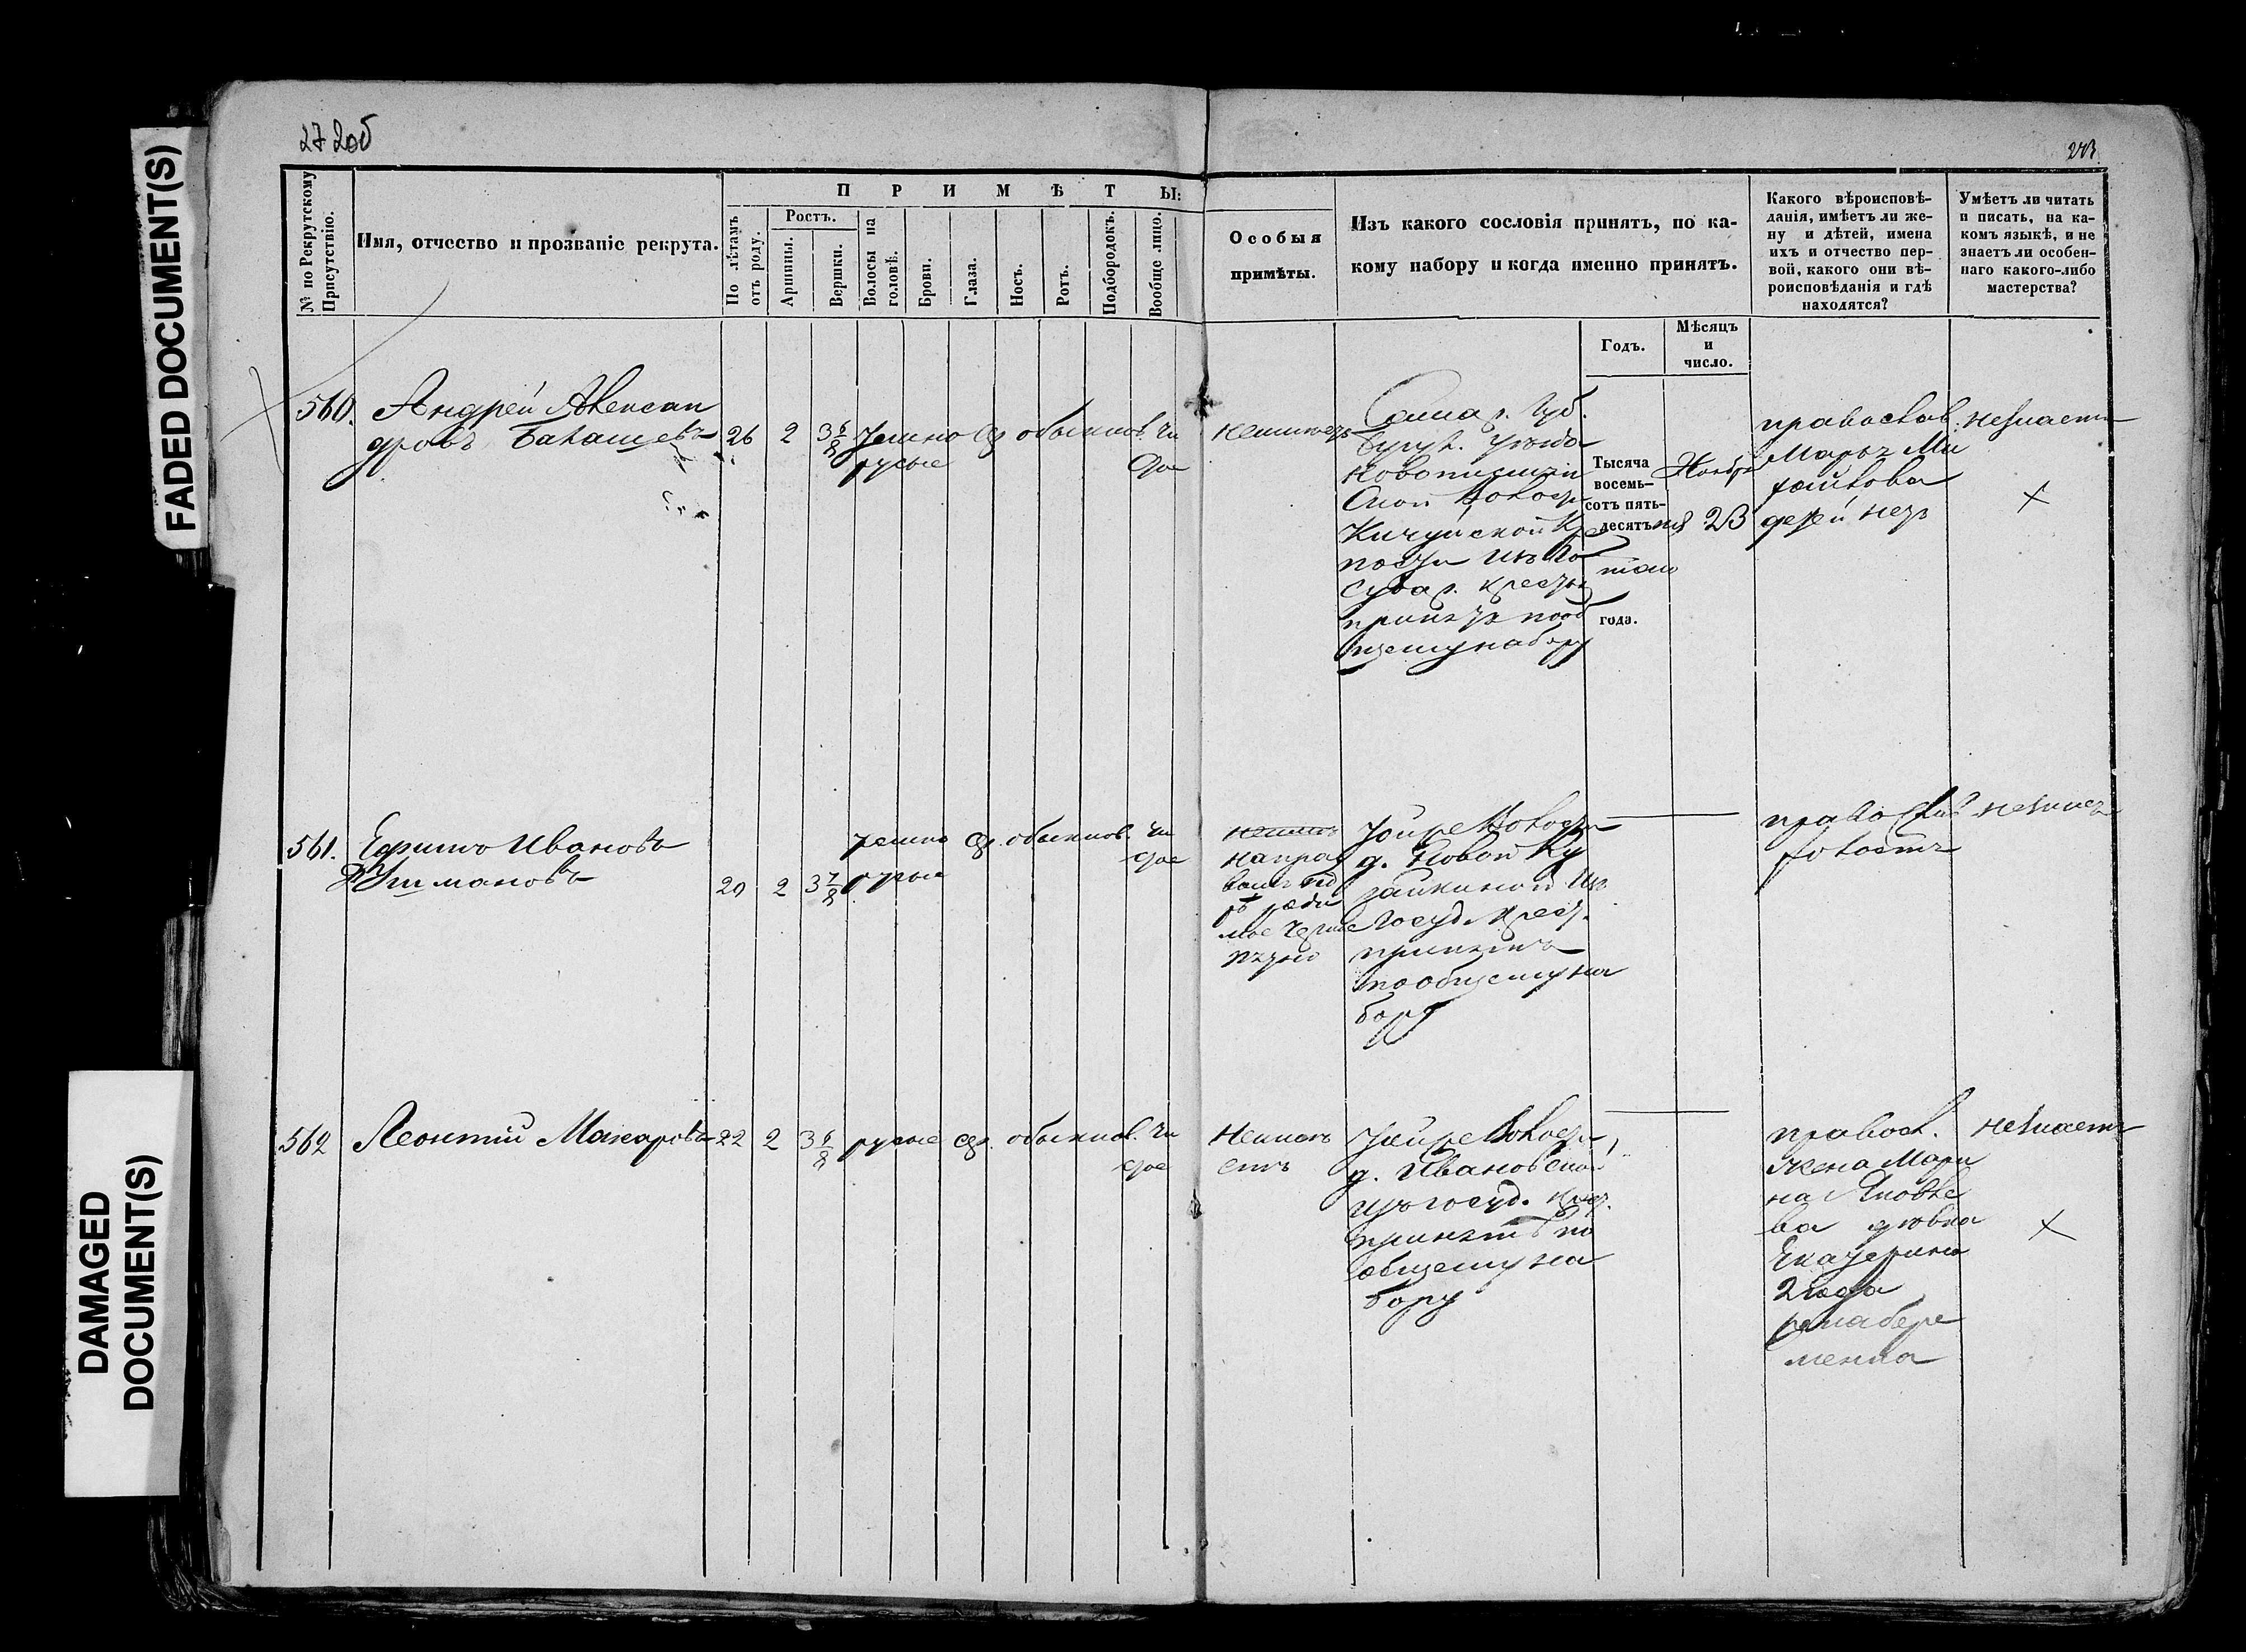 FADED DOCUMENT(S)
DAMAGED
DOCUMENT(S)
272об
273
№ по Рекрутскому
Присутствію.
Имя, отчество и прозваніе рекрута.
П Р И М Ѣ Т Ы:
По лѣтамъ
отъ роду.
Ростъ.
Аршины.
Вершки.
Волосы на
головѣ.
Брови.
Глаза.
Носъ.
Ротъ.
Подбородокъ.
Вообще лицо.
Особыя
примѣты.
Изъ какого сословія принятъ, по ка-
кому набору и когда именно принятъ.
Годъ.
Мѣсяцъ
и
число.
Какого вѣроисповѣ-
данія, имѣетъ ли же-
ну и дѣтей, имена
ихъ и отчество пер-
вой, какого они вѣ-
роисповѣданія и гдѣ
находятся?
Умѣетъ ли читать
и писать, на ка-
комъ языкѣ, и не
знаетъ ли особен-
наго какого-либо
мастерства?
560.
Андрей Алексан
дровъ Балашевъ
26 2 3 6/8
темно
русые
ср обыкнов. чи
стое
неимеетъ
Самар. Губ.
Бугул. уезда
Новописмян
ской волост
Кичуйской Кре
пости изъ Го
судар. крестьян
принятъ пооб
щему набору
Тысяча
восемь-
сотъ пять-
десять
томъ
года.
Ноября
23
православ.
Марья Ми
хайлова
детей нетъ
незнаетъ
561.
Ефимъ Ивановъ
Утмановъ
20 2 3 7/8
темно
русые
ср. обыкнов. чи
стое
на пра
пятно
Той же волости
д. Новой Ку
Госуд. крест.
принятъ
пообщему на
бору
православ
холостъ
незнаетъ
562
Леонтий Макаровъ
22 2 3 6/8
русые ср. обыкнов. чи
стое
Неиме
етъ
Той же волости
д. Ивановской
изъ госуд. крест.
принятъ по
общему на
бору
правосл.
жена Мари
на Яковле
ва дочь
Екатерина
2 года
жена бере
менна
незнаетъ